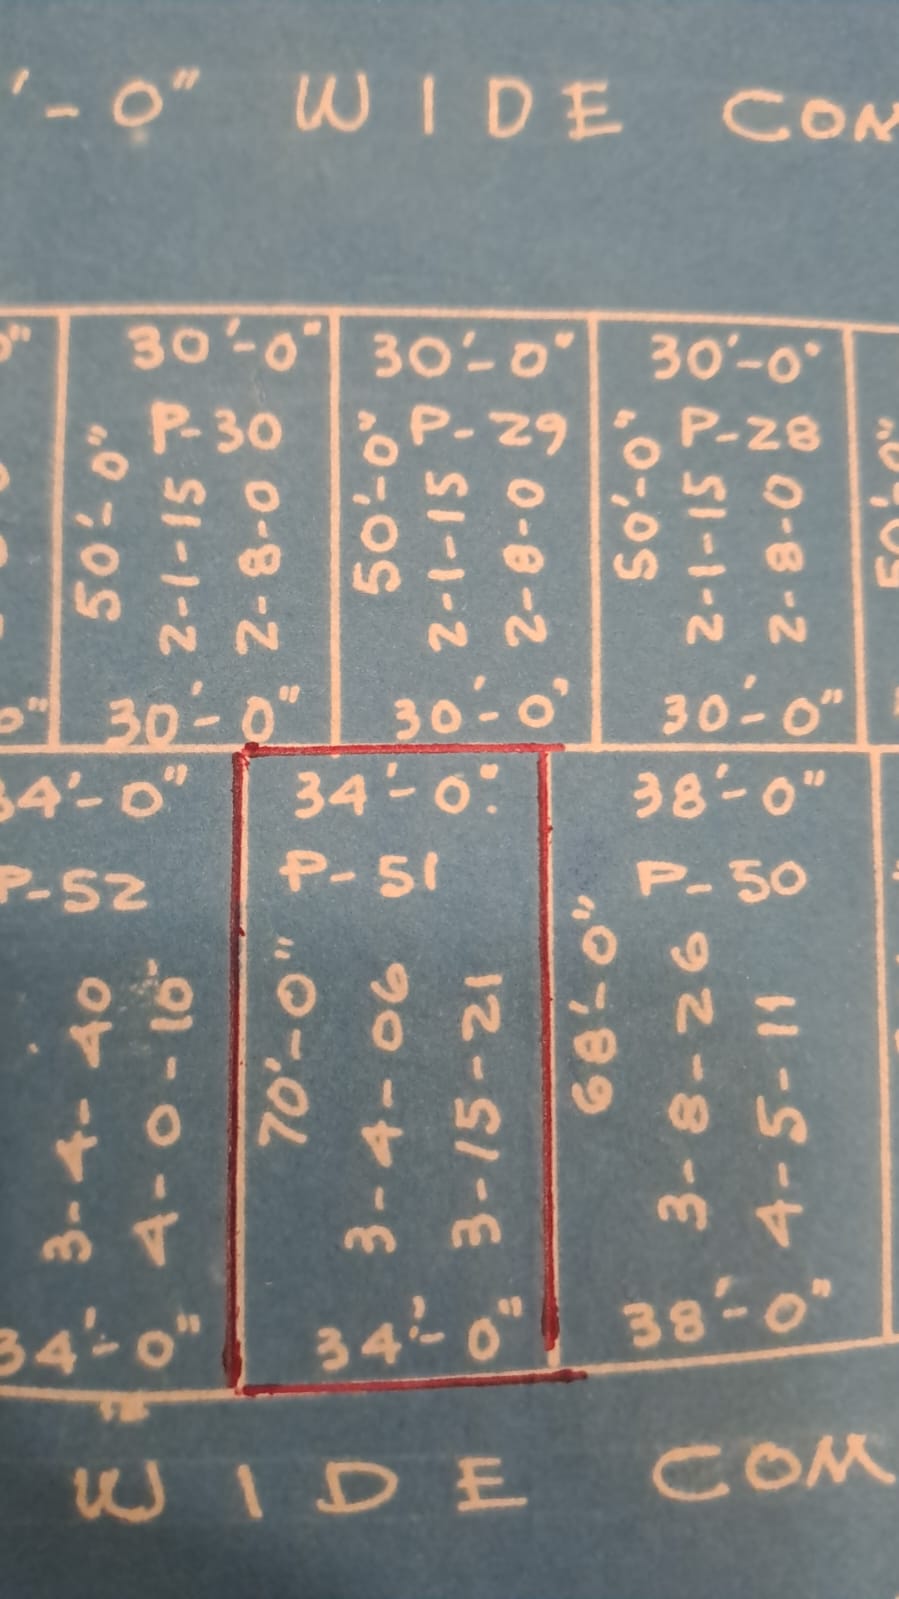 '-0" WIDE CON
0"
30'-0"
P-30
50'-0"
2-1-15
2-8-0
30'-0"
30'-0"
P-29
50'-0"
2-1-15
2-8-0
30'-0'
30'-0"
P-28
50'-0"
2-1-15
2-8-0
30'-0"
50'-0"
0"
34'-0"
P-52
3-4-40
4-0-10
34'-0"
34'-0"
P-51
70'-0"
3-4-06
3-15-21
34'-0"
38'-0"
P-50
68'-0"
3-8-26
4-5-11
38'-0"
WIDE COM